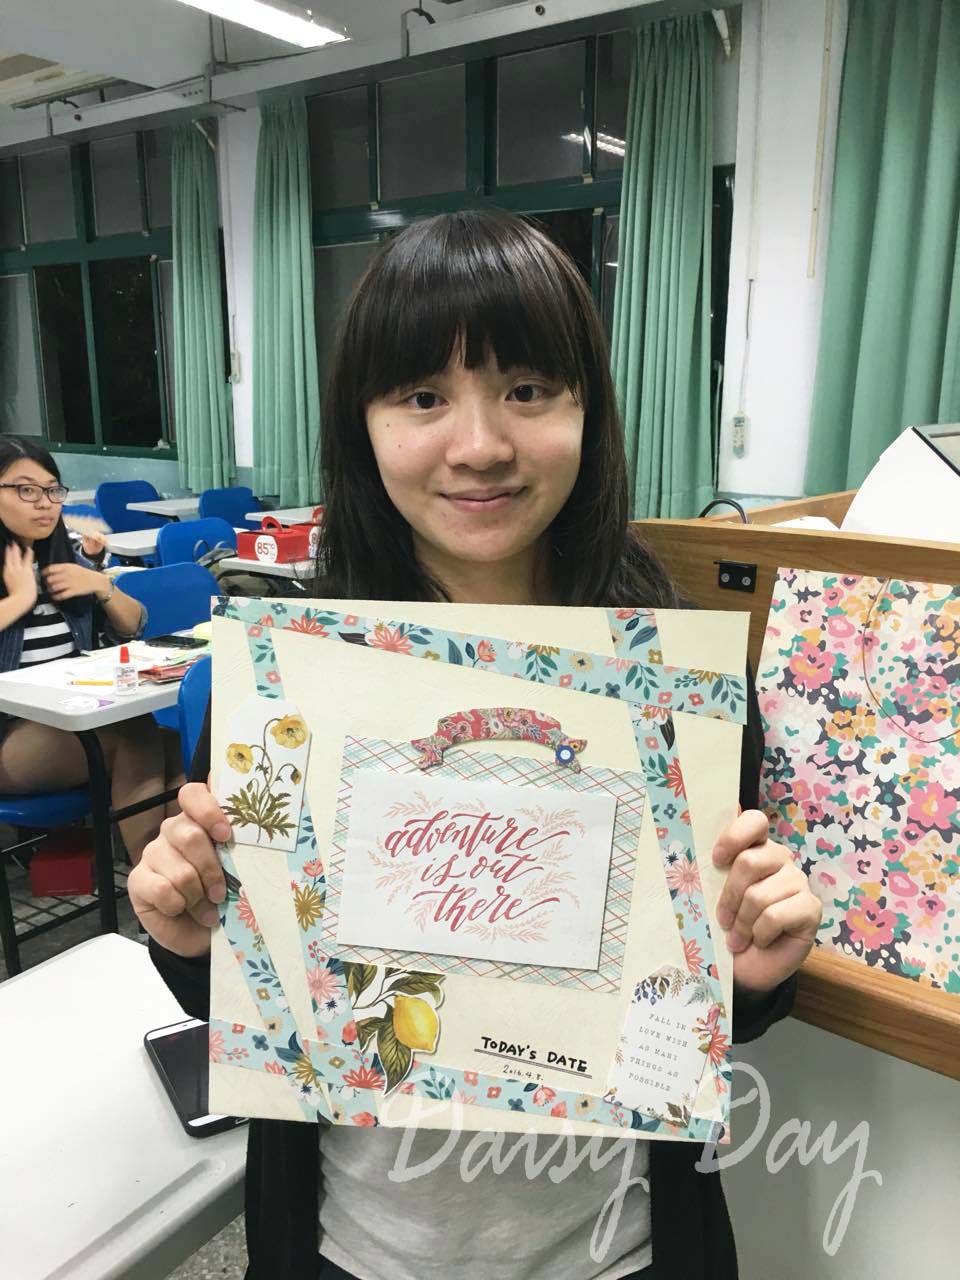 85°C
adventure
is out
there
TODAY'S DATE
2016.4.8.
FALL IN
LOVE WITH
AS MANY
THINGS AS
POSSIBLE
Daisy Day